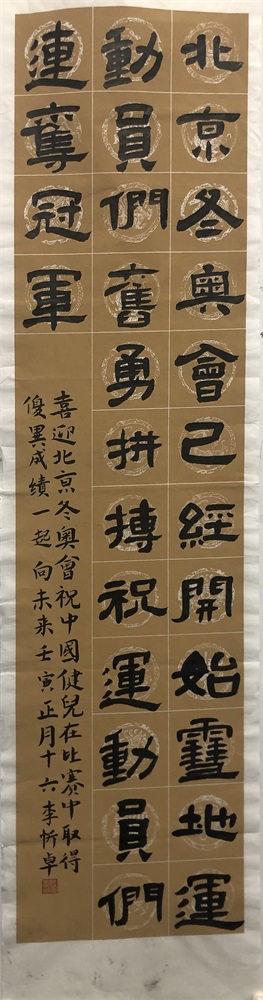 北京冬奥會已經開始雪地運
動員們奮勇拼搏祝運動員們
連奪冠軍
喜迎北京冬奧會祝中國健兒在比賽中取得
優異成績一起向未来壬寅正月十六李忻卓